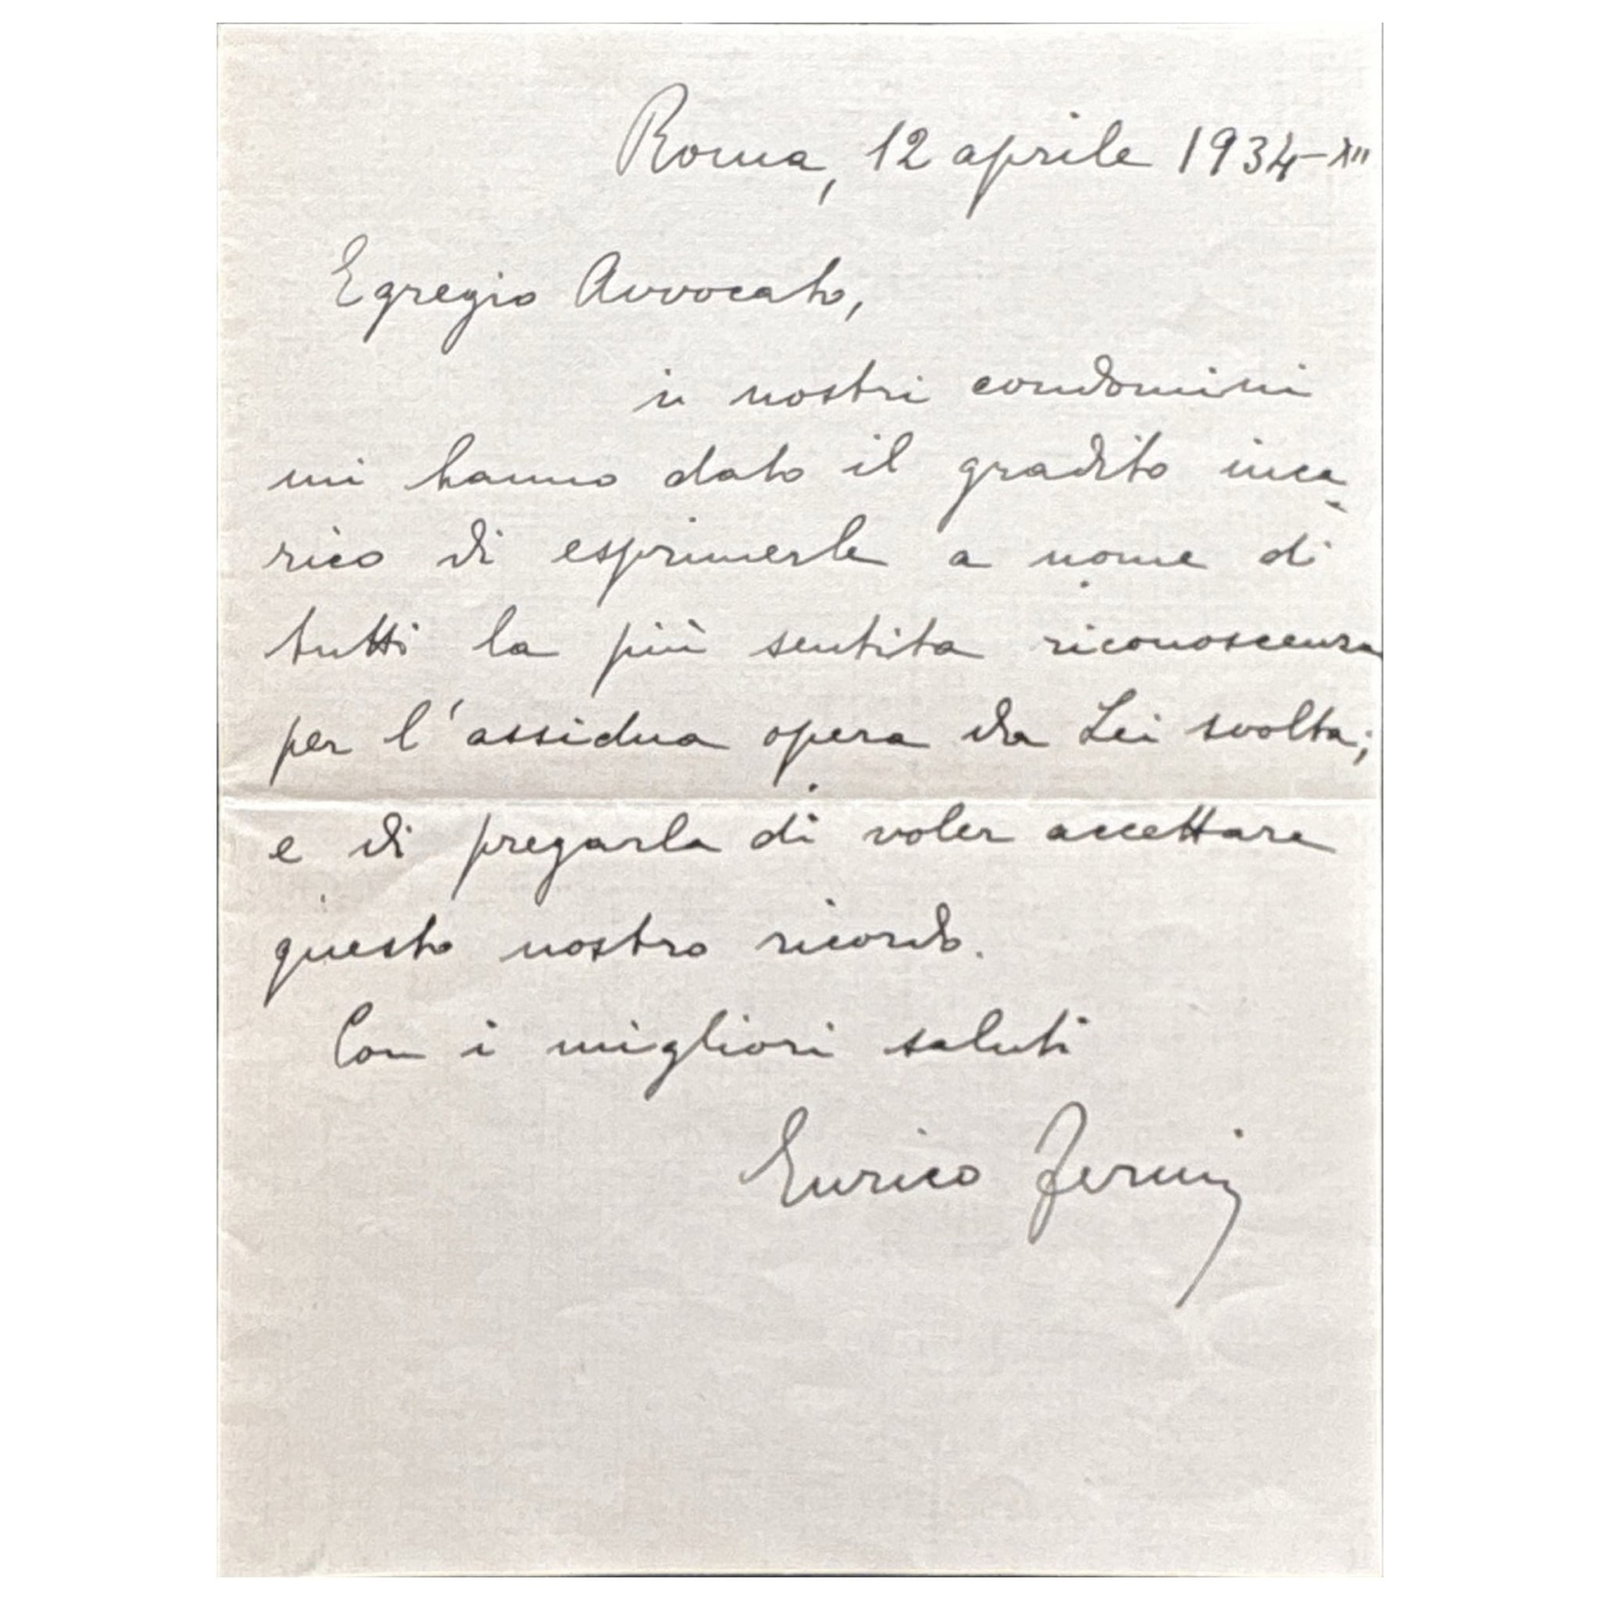 Roma, 12 aprile 1934-XII
Egregio Avvocato,
i nostri condomini
mi hanno dato il gradito inca-
rico di esprimerle a nome di
tutti la più sentita riconoscenza
per l'assidua opera da Lei svolta;
e di pregarla di voler accettare
questo nostro ricordo.
Con i migliori saluti
Enrico Fermi